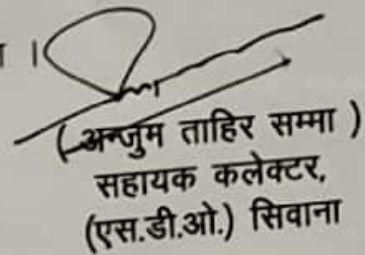 ा ।
( अन्जुम ताहिर सम्मा )
सहायक कलेक्टर,
(एस.डी.ओ.) सिवाना